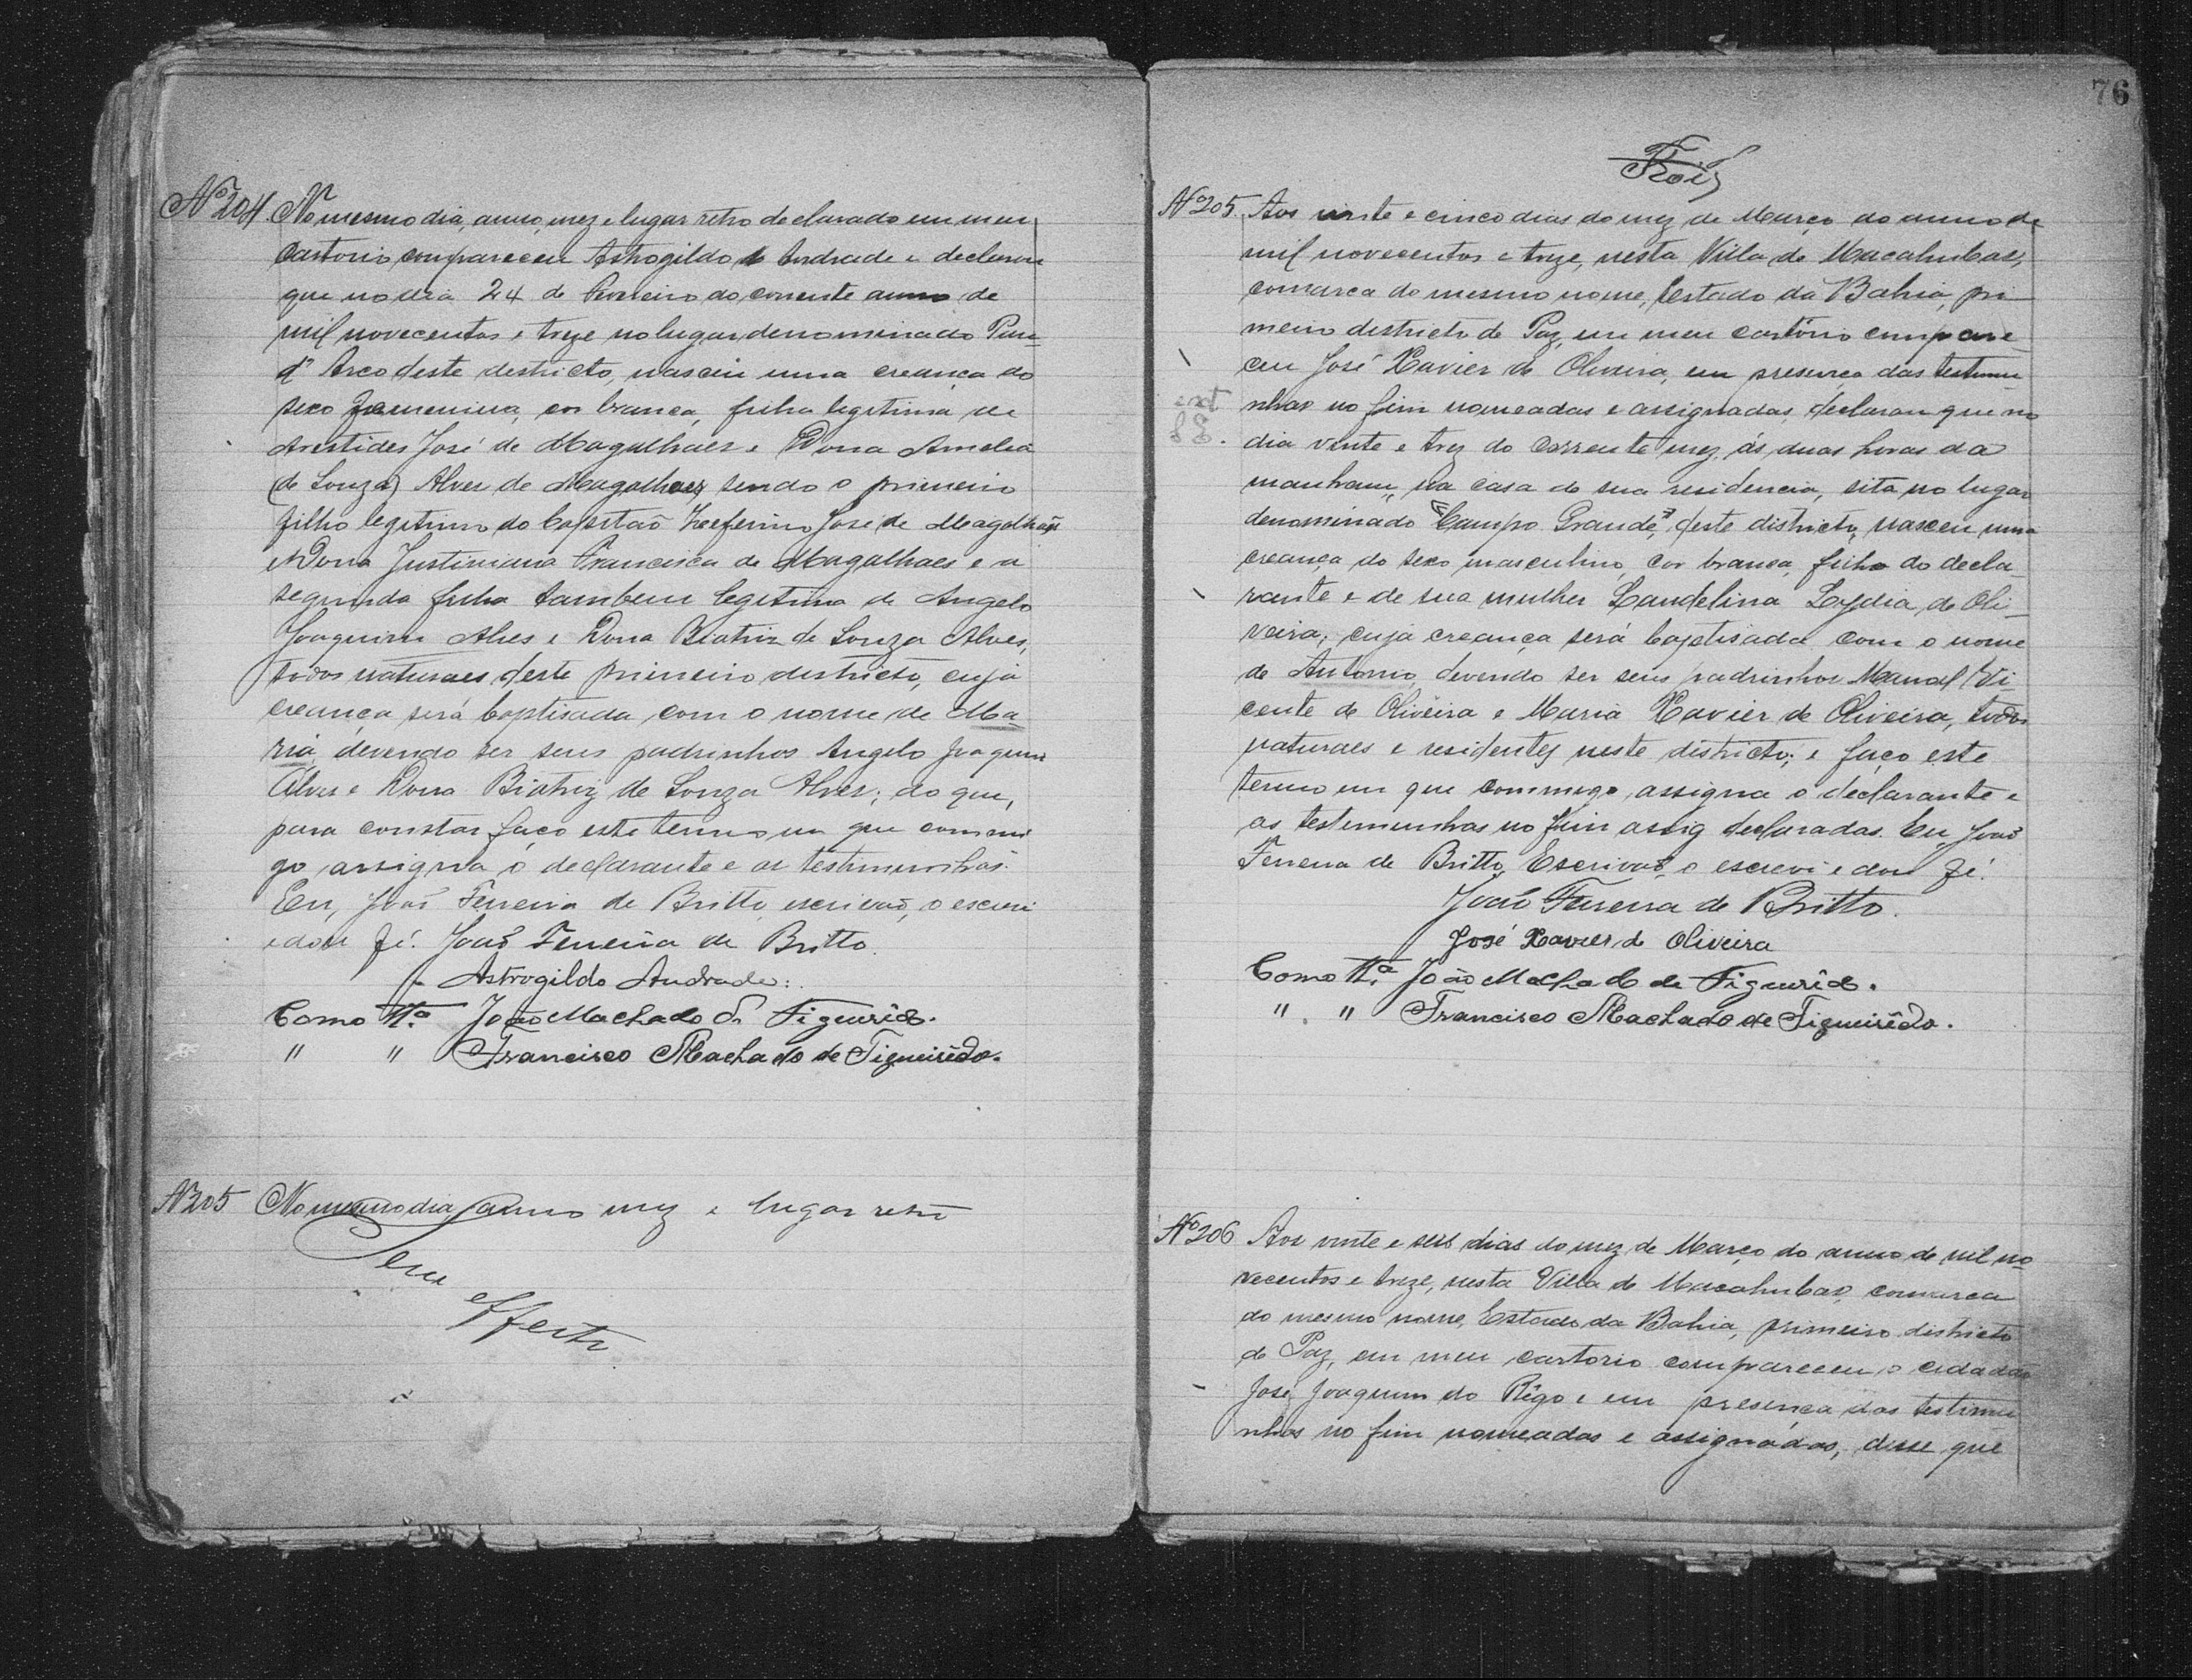 Nº 204. No mesmo dia, anno, mez e lugar retro declarado em meu
Cartorio compareceu Astrogildo de Andrade e declarou
que no dia 24 de Fevereiro do corrente anno de
mil novecentos e treze no lugar denominado Páu
d'Arco deste destricto, nasceu uma creança do
sexo femenina, cor branca, filha legitima de
Arestides José de Magalhães e Dona Amelia
(de Souza) Alves de Magalhaes, sendo o primeiro
filho legitimo do Capitão Zeferino José de Magalhães
e Dona Justiniana Francisca de Magalhaes e a
segunda filha tambem legitima de Angelo
Joaquim Alves e Dona Beatriz de Souza Alves,
todos naturaes deste primeiro destricto, cuja
creança será baptisada com o nome de Ma-
ria, devendo ser seus padrinhos Angelo Joaquim
Alves e Dona Biatriz de Souza Alves; do que,
para constar faço este termo em que commi
go assigna o declarante e as testimunhas.
Eu, João Ferreira de Britto, escrivão, o escrevi
e dou fé. João Ferreira de Britto.
Astrogildo Andrade.
Como Tª. João Machado de Figueirêdo.
" " Francisco Machado de Figueirêdo.
Nº 205 No mesmo dia, anno mez e lugar retro
Sem
effeito
76
Nº 205. Aos vinte e cinco dias do mez de Março do anno de
mil novecentos e treze, nesta Villa de Macahubas,
comarca do mesmo nome, Estado da Bahia, pri-
meiro districto de Paz, em meu cartório compare-
ceu José Xavier de Oliveira, em presença das testemu-
nhas no fim nomeadas e assignadas, declarou que no
dia vinte e trez do corrente mez, ás duas horas da
manham, na casa de sua residencia, sita no lugar
denominado "Campo Grande", deste districto, nasceu uma
creança do sexo masculino, cor branca, filho do decla-
rante e de sua mulher Laudelina Lydia de Oli-
veira; cuja creança será baptisada com o nome
de Antonio, devendo ser seus padrinhos Manoel Vi-
cente de Oliveira e Maria Xavier de Oliveira, todos
naturaes e residentes neste districto; e faço este
termo em que commigo assigna o declarante e
as testemunhas no fim assig declaradas. Eu, João
Ferreira de Britto, Escrivão, o escrevi e dou fé.
João Ferreira de Britto.
José Xavier de Oliveira
Como Tª. João Machado de Figueirêdo.
" " Francisco Machado de Figueirêdo.
Nº 206 Aos vinte e seis dias do mez de Março do anno de mil no-
vecentos e treze, nesta Villa de Macahubas, comarca
do mesmo nome, Estado da Bahia, primeiro districto
de Paz, em meu cartorio compareceu o cidadão
José Joaquim do Rêgo e em presença das testimu-
nhas no fim nomeadas e assignadas, disse que